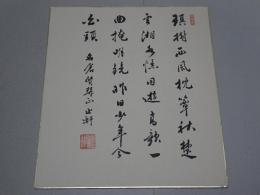 琪樹西風枕簟秋楚
雲湘水憶同遊高歌一
曲掩明鏡昨日少年今
白頭